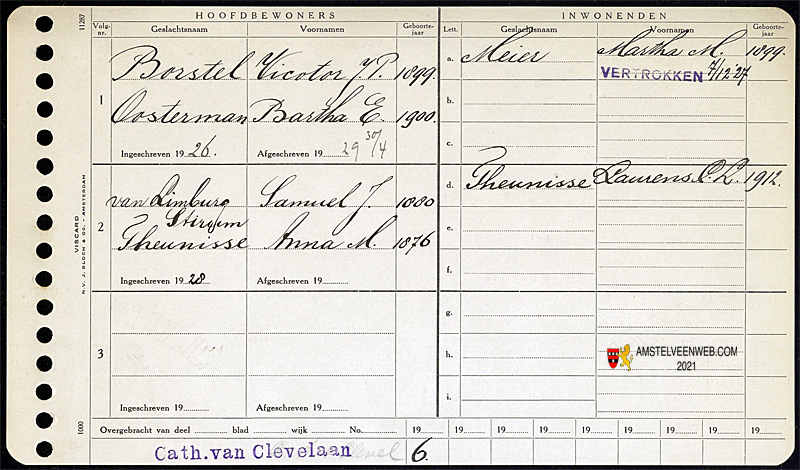 HOOFDBEWONERS
INWONENDEN
11287
Volg-nr.
Geslachtsnaam
Voornamen
Geboorte-jaar
Lett.
Geslachtsnaam
Voornamen
Geboorte-jaar
1
Borstel Vicotor J.P. 1899.
Oosterman Bartha E. 1900.
Ingeschreven 19 26.
Afgeschreven 19 29 30/4
2
van Limburg Samuel J. 1880
Stirum
Theunisse Anna M. 1876
Ingeschreven 19 28
Afgeschreven 19
3
Ingeschreven 19
Afgeschreven 19
a. Meier Martha M. 1899.
VERTROKKEN 7/12'27
b.
c.
d. Theunisse Laurens C.L. 1912.
e.
f.
g.
h.
i.
AMSTELVEENWEB.COM
2021
VISCARD
N.V. J. BLOCH & CO. AMSTERDAM
1000
Overgebracht van deel blad wijk No. 19 19 19 19 19 19 19 19 19
Cath. van Clevelaan 6.